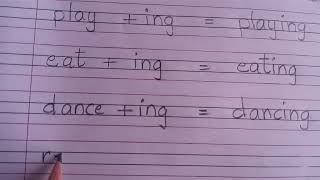 play + ing = playing
eat + ing = eating
dance + ing = dancing
r